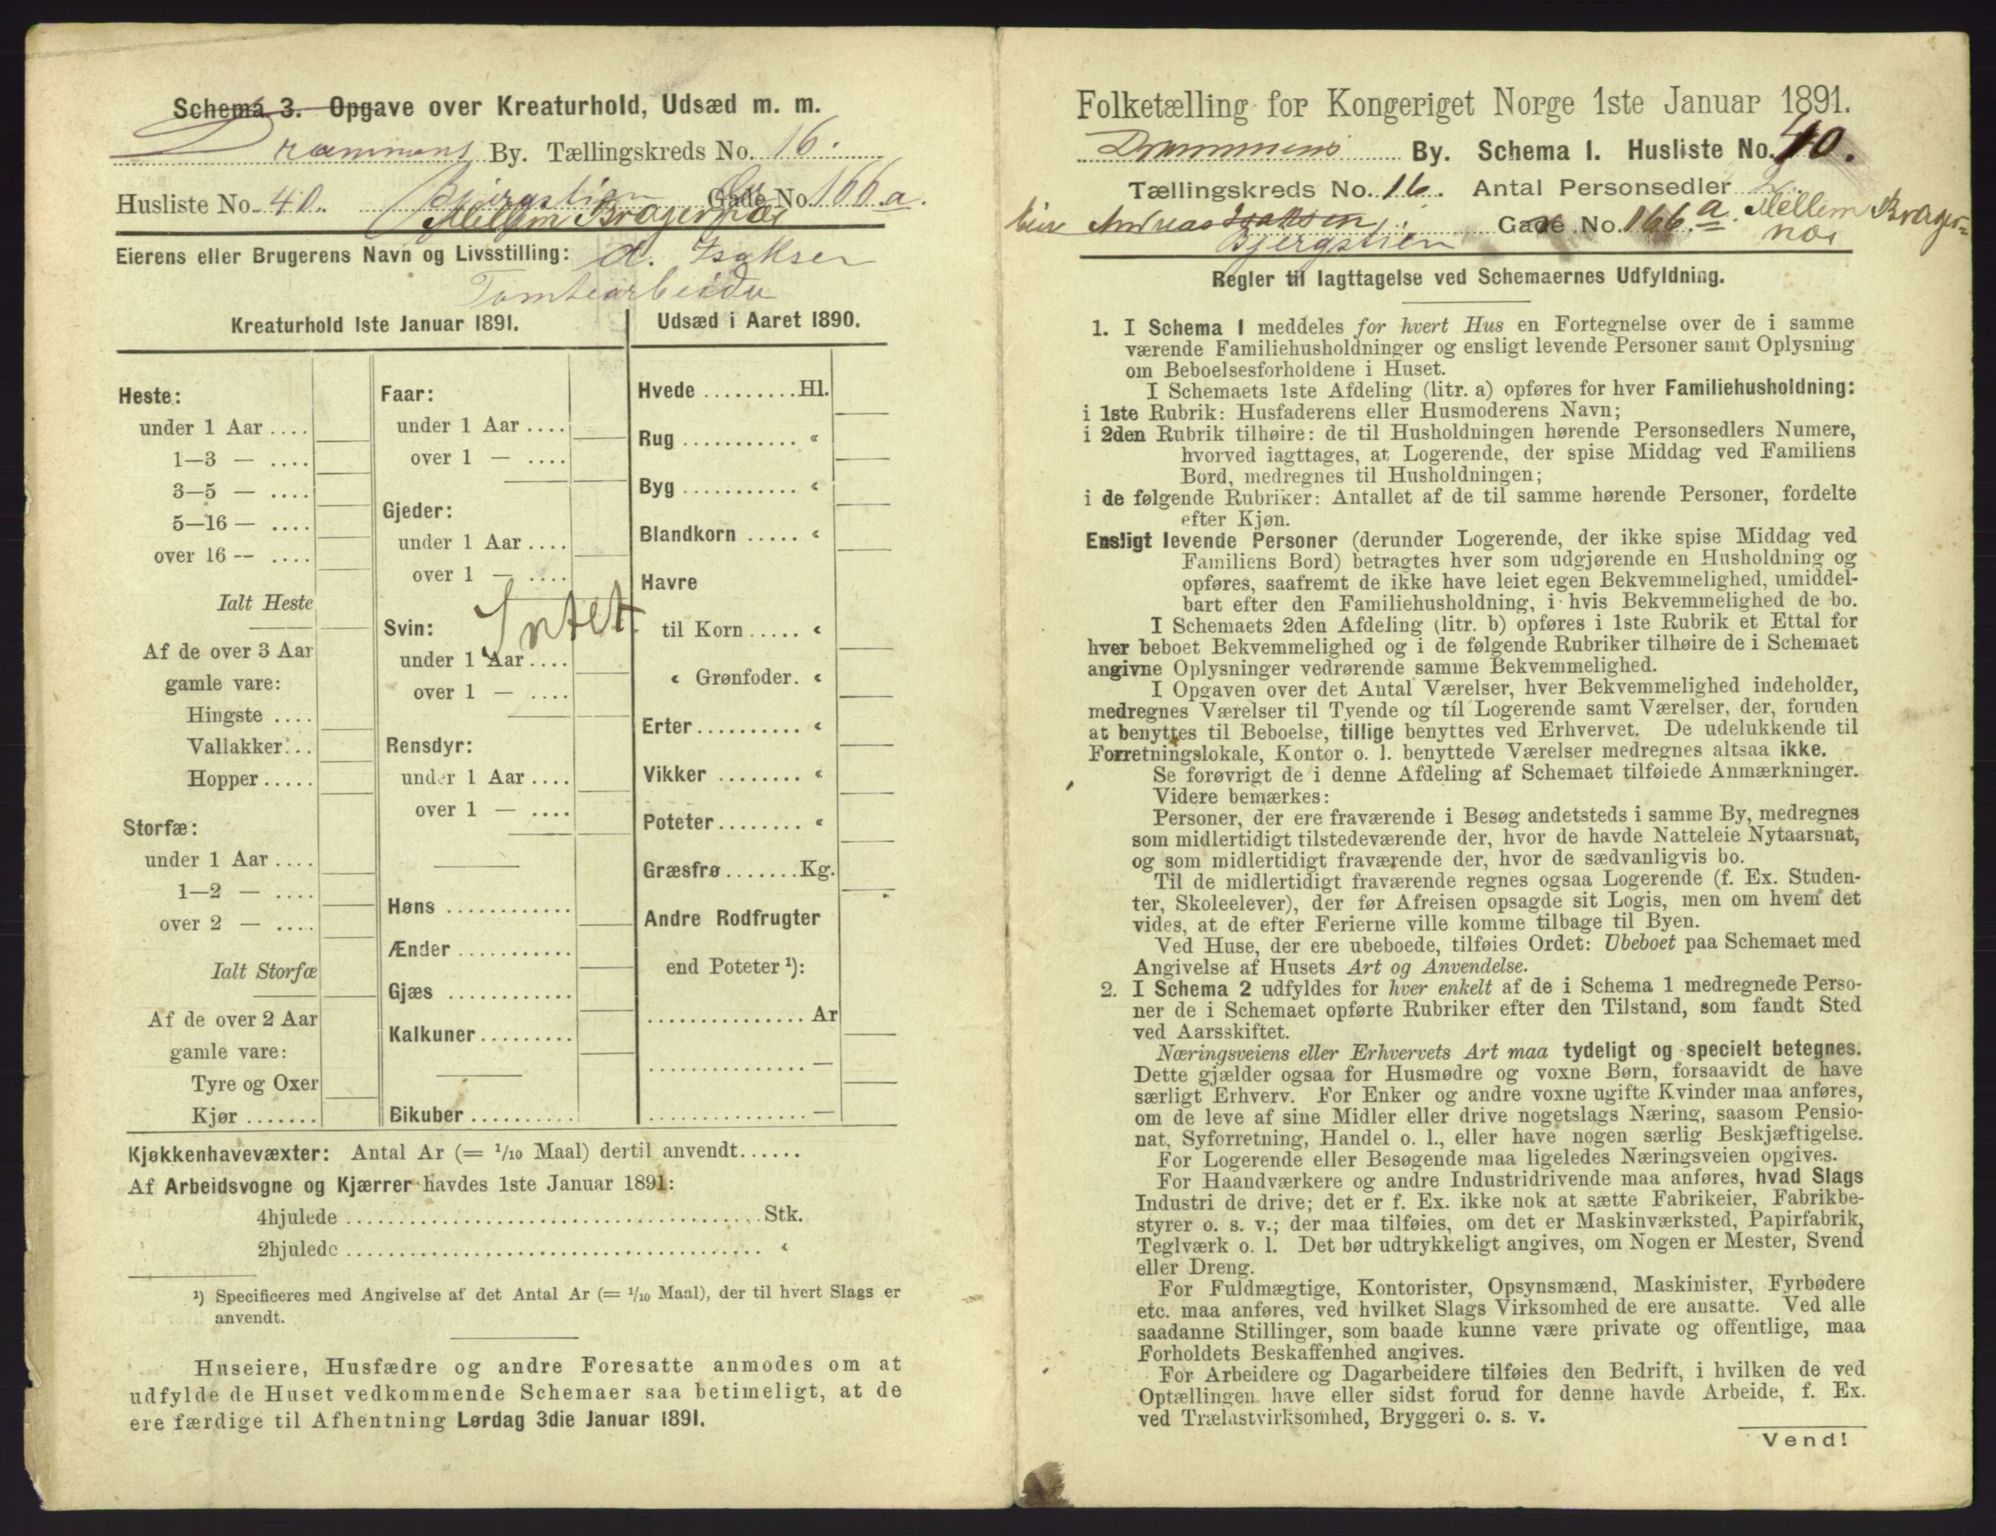 Schema 3. Opgave over Kreaturhold, Udsæd m. m.
Drammens By. Tællingskreds No. 16.
Husliste No. 40. Bjergstien Gade No. 166 a.
Mellem Bragernæs
Eierens eller Brugerens Navn og Livsstilling: A. Isaksen
Tomtearbeider
Kreaturhold 1ste Januar 1891.
Heste:
under 1 Aar ....
1—3 — ....
3—5 — ....
5—16 — ....
over 16 — ....
Ialt Heste
Af de over 3 Aar
gamle vare:
Hingste ....
Vallakker...
Hopper.....
Storfæ:
under 1 Aar ....
1—2 — ....
over 2 — ....
Ialt Storfæ
Af de over 2 Aar
gamle vare:
Tyre og Oxer
Kjør.......
Faar:
under 1 Aar ....
over 1 — ....
Gjeder:
under 1 Aar ....
over 1 — ....
Intet
Svin:
under 1 Aar ....
over 1 — ....
Rensdyr:
under 1 Aar ....
over 1 — ....
Høns ............
Ænder ...........
Gjæs ............
Kalkuner.........
Bikuber ..........
Udsæd i Aaret 1890.
Hvede .........Hl.
Rug ........... «
Byg ........... «
Blandkorn ..... «
Havre
til Korn ..... «
« Grønfoder. «
Erter .......... «
Vikker ........ «
Poteter........ «
Græsfrø.......Kg.
Andre Rodfrugter
end Poteter ¹):
............... Ar
............... —
............... —
Kjøkkenhavevæxter: Antal Ar (= 1/10 Maal) dertil anvendt......
Af Arbeidsvogne og Kjærrer havdes 1ste Januar 1891:
4hjulede ........................................Stk.
2hjulede ........................................ «
¹) Specificeres med Angivelse af det Antal Ar (= 1/10 Maal), der til hvert Slags er
anvendt.
Huseiere, Husfædre og andre Foresatte anmodes om at
udfylde de Huset vedkommende Schemaer saa betimeligt, at de
ere færdige til Afhentning Lørdag 3die Januar 1891.
Folketælling for Kongeriget Norge 1ste Januar 1891.
Drammens By. Schema I. Husliste No. 40.
Tællingskreds No. 16. Antal Personsedler 2.
Eier Andreas Isaksen Gade No. 166. a Mellem Bragernæs
Bjergstien
Regler til Iagttagelse ved Schemaernes Udfyldning.
1. I Schema 1 meddeles for hvert Hus en Fortegnelse over de i samme
værende Familiehusholdninger og ensligt levende Personer samt Oplysning
om Beboelsesforholdene i Huset.
I Schemaets 1ste Afdeling (litr. a) opføres for hver Familiehusholdning:
i 1ste Rubrik: Husfaderens eller Husmoderens Navn;
i 2den Rubrik tilhøire: de til Husholdningen hørende Personsedlers Numere,
hvorved iagttages, at Logerende, der spise Middag ved Familiens
Bord, medregnes til Husholdningen;
i de følgende Rubriker: Antallet af de til samme hørende Personer, fordelte
efter Kjøn.
Ensligt levende Personer (derunder Logerende, der ikke spise Middag ved
Familiens Bord) betragtes hver som udgjørende en Husholdning og
opføres, saafremt de ikke have leiet egen Bekvemmelighed, umiddel-
bart efter den Familiehusholdning, i hvis Bekvemmelighed de bo.
I Schemaets 2den Afdeling (litr. b) opføres i 1ste Rubrik et Ettal for
hver beboet Bekvemmelighed og i de følgende Rubriker tilhøire de i Schemaet
angivne Oplysninger vedrørende samme Bekvemmelighed.
I Opgaven over det Antal Værelser, hver Bekvemmelighed indeholder,
medregnes Værelser til Tyende og til Logerende samt Værelser, der, foruden
at benyttes til Beboelse, tillige benyttes ved Erhvervet. De udelukkende til
Forretningslokale, Kontor o. l. benyttede Værelser medregnes altsaa ikke.
Se forøvrigt de i denne Afdeling af Schemaet tilføiede Anmærkninger.
Videre bemærkes:
Personer, der ere fraværende i Besøg andetsteds i samme By, medregnes
som midlertidigt tilstedeværende der, hvor de havde Natteleie Nytaarsnat,
og som midlertidigt fraværende der, hvor de sædvanligvis bo.
Til de midlertidigt fraværende regnes ogsaa Logerende (f. Ex. Studen-
ter, Skoleelever), der før Afreisen opsagde sit Logis, men om hvem det
vides, at de efter Ferierne ville komme tilbage til Byen.
Ved Huse, der ere ubeboede, tilføies Ordet: Ubeboet paa Schemaet med
Angivelse af Husets Art og Anvendelse.
2. I Schema 2 udfyldes for hver enkelt af de i Schema 1 medregnede Perso-
ner de i Schemaet opførte Rubriker efter den Tilstand, som fandt Sted
ved Aarsskiftet.
Næringsveiens eller Erhvervets Art maa tydeligt og specielt betegnes.
Dette gjælder ogsaa for Husmødre og voxne Børn, forsaavidt de have
særligt Erhverv. For Enker og andre voxne ugifte Kvinder maa anføres,
om de leve af sine Midler eller drive nogetslags Næring, saasom Pensio-
nat, Syforretning, Handel o. l., eller have nogen særlig Beskjæftigelse.
For Logerende eller Besøgende maa ligeledes Næringsveien opgives.
For Haandværkere og andre Industridrivende maa anføres, hvad Slags
Industri de drive; det er f. Ex. ikke nok at sætte Fabrikeier, Fabrikbe-
styrer o. s. v.; der maa tilføies, om det er Maskinværksted, Papirfabrik,
Teglværk o. l. Det bør udtrykkeligt angives, om Nogen er Mester, Svend
eller Dreng.
For Fuldmægtige, Kontorister, Opsynsmænd, Maskinister, Fyrbødere
etc. maa anføres, ved hvilket Slags Virksomhed de ere ansatte. Ved alle
saadanne Stillinger, som baade kunne være private og offentlige, maa
Forholdets Beskaffenhed angives.
For Arbeidere og Dagarbeidere tilføies den Bedrift, i hvilken de ved
Optællingen have eller sidst forud for denne havde Arbeide, f. Ex.
ved Trælastvirksomhed, Bryggeri o. s. v.
Vend!